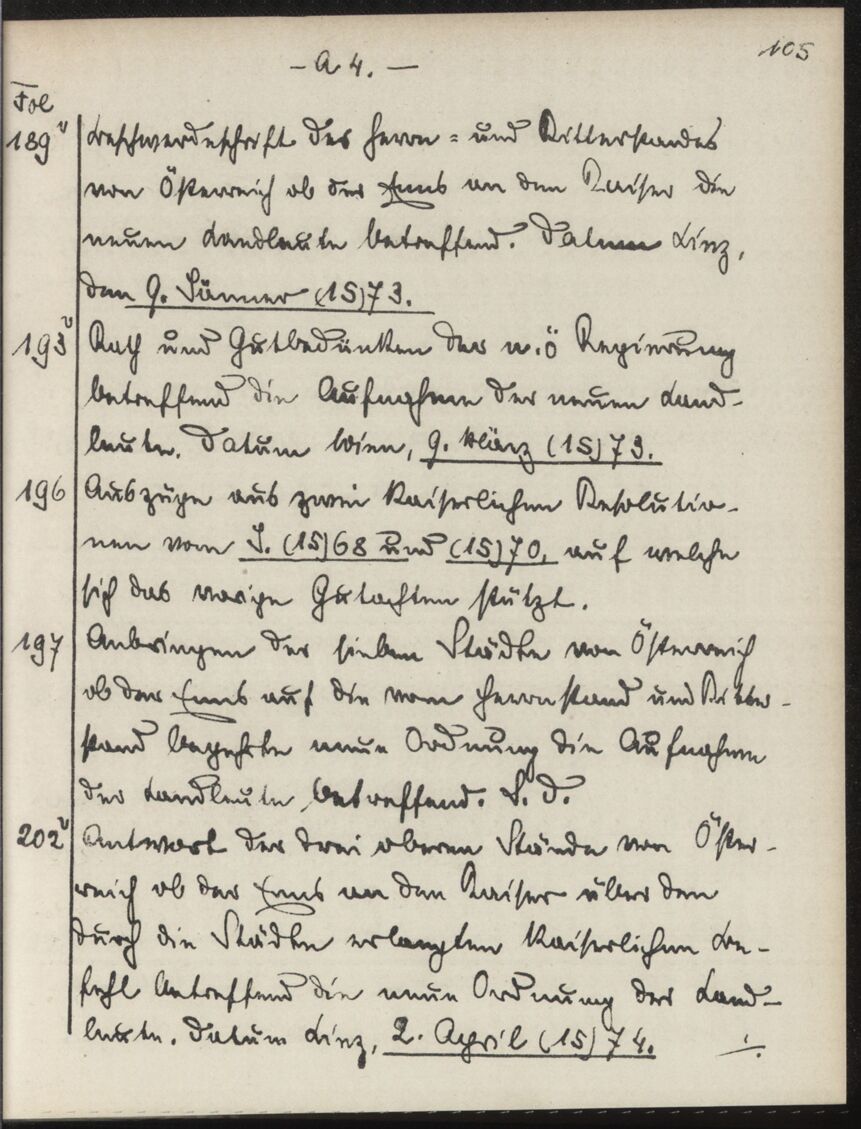 105
- A 4. -
Fol
189v Beschwerdeschrift des Herrn = und Ritterstandes
von Österreich ob der Enns an den Kaiser die
neuen Landleute betreffend. Datum Linz,
den 9. Jänner (15)73.
193v Rath und Gutbedünken der n.ö Regierung
betreffend die Aufnahme der neuen Land-
leute. Datum Wien, 9. März (15)73.
196 Auszüge aus zwei Kaiserlichen Resolutio-
nen vom J. (15)68 und (15)70, auf welche
sich das vorige Gutachten stützt.
197 Anbringen der sieben Städte von Österreich
ob der Enns auf die vom Herrnstand und Ritter-
stand begehrte neue Ordnung die Aufnahme
der Landleute betreffend. S. d.
202v Antwort der drei oberen Stände von Öster-
reich ob der Enns an den Kaiser über den
durch die Städte erlangten Kaiserlichen Be-
fehl betreffend die neue Ordnung der Land-
leute. Datum Linz, 2. April (15)74. ./.